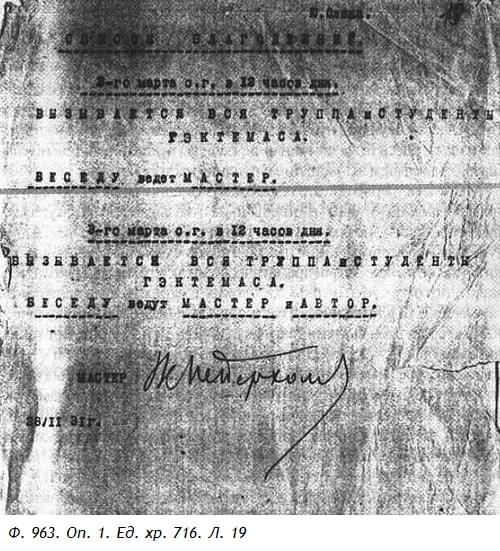 Ю.Олеша. 19
СПИСОК БЛАГОДЕЯНИЙ.
2-го марта с.г. в 12 часов дня.
ВЫЗЫВАЕТСЯ ВСЯ ТРУППА и СТУДЕНТЫ
ГЭКТЕМАСА.
БЕСЕДУ ведет МАСТЕР.
3-го марта с.г. в 12 часов дня.
ВЫЗЫВАЕТСЯ ВСЯ ТРУППА и СТУДЕНТЫ
ГЭКТЕМАСА.
БЕСЕДУ ведут МАСТЕР и АВТОР.
МАСТЕР Вс Мейерхольд
28/II 31г.
Ф. 963. Оп. 1. Ед. хр. 716. Л. 19